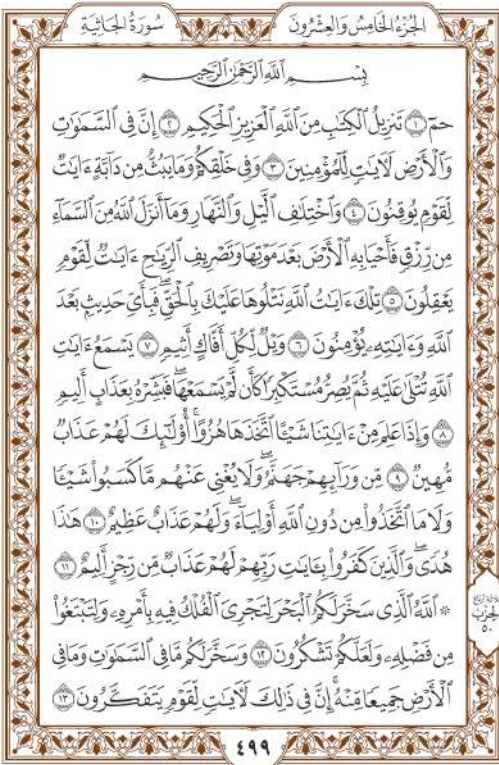 الجُزْءُ الخَامِسُ وَالعِشْرُونَ
سُورَةُ الجَاثِيَةِ
بِسْمِ ٱللَّهِ ٱلرَّحْمَٰنِ ٱلرَّحِيمِ
حمٓ ١ تَنزِيلُ ٱلْكِتَٰبِ مِنَ ٱللَّهِ ٱلْعَزِيزِ ٱلْحَكِيمِ ٢ إِنَّ فِى ٱلسَّمَٰوَٰتِ
وَٱلْأَرْضِ لَءَايَٰتٍ لِّلْمُؤْمِنِينَ ٣ وَفِى خَلْقِكُمْ وَمَا يَبُثُّ مِن دَآبَّةٍ ءَايَٰتٌ
لِّقَوْمٍ يُوقِنُونَ ٤ وَٱخْتِلَٰفِ ٱلَّيْلِ وَٱلنَّهَارِ وَمَآ أَنزَلَ ٱللَّهُ مِنَ ٱلسَّمَآءِ
مِن رِّزْقٍ فَأَحْيَا بِهِ ٱلْأَرْضَ بَعْدَ مَوْتِهَا وَتَصْرِيفِ ٱلرِّيَٰحِ ءَايَٰتٌ لِّقَوْمٍ
يَعْقِلُونَ ٥ تِلْكَ ءَايَٰتُ ٱللَّهِ نَتْلُوهَا عَلَيْكَ بِٱلْحَقِّ ۖ فَبِأَىِّ حَدِيثٍۭ بَعْدَ
ٱللَّهِ وَءَايَٰتِهِۦ يُؤْمِنُونَ ٦ وَيْلٌ لِّكُلِّ أَفَّاكٍ أَثِيمٍ ٧ يَسْمَعُ ءَايَٰتِ
ٱللَّهِ تُتْلَىٰ عَلَيْهِ ثُمَّ يُصِرُّ مُسْتَكْبِرًا كَأَن لَّمْ يَسْمَعْهَا ۖ فَبَشِّرْهُ بِعَذَابٍ أَلِيمٍ
٨ وَإِذَا عَلِمَ مِنْ ءَايَٰتِنَا شَيْـًٔا ٱتَّخَذَهَا هُزُوًا ۚ أُو۟لَٰٓئِكَ لَهُمْ عَذَابٌ
مُّهِينٌ ٩ مِّن وَرَآئِهِمْ جَهَنَّمُ ۖ وَلَا يُغْنِى عَنْهُم مَّا كَسَبُوا۟ شَيْـًٔا
وَلَا مَا ٱتَّخَذُوا۟ مِن دُونِ ٱللَّهِ أَوْلِيَآءَ ۖ وَلَهُمْ عَذَابٌ عَظِيمٌ ١٠ هَٰذَا
هُدًى ۖ وَٱلَّذِينَ كَفَرُوا۟ بِـَٔايَٰتِ رَبِّهِمْ لَهُمْ عَذَابٌ مِّن رِّجْزٍ أَلِيمٌ ١١
۞ ٱللَّهُ ٱلَّذِى سَخَّرَ لَكُمُ ٱلْبَحْرَ لِتَجْرِىَ ٱلْفُلْكُ فِيهِ بِأَمْرِهِۦ وَلِتَبْتَغُوا۟
مِن فَضْلِهِۦ وَلَعَلَّكُمْ تَشْكُرُونَ ١٢ وَسَخَّرَ لَكُم مَّا فِى ٱلسَّمَٰوَٰتِ وَمَا فِى
ٱلْأَرْضِ جَمِيعًا مِّنْهُ ۚ إِنَّ فِى ذَٰلِكَ لَءَايَٰتٍ لِّقَوْمٍ يَتَفَكَّرُونَ ١٣
الحِزْبُ
٥٠
٤٩٩